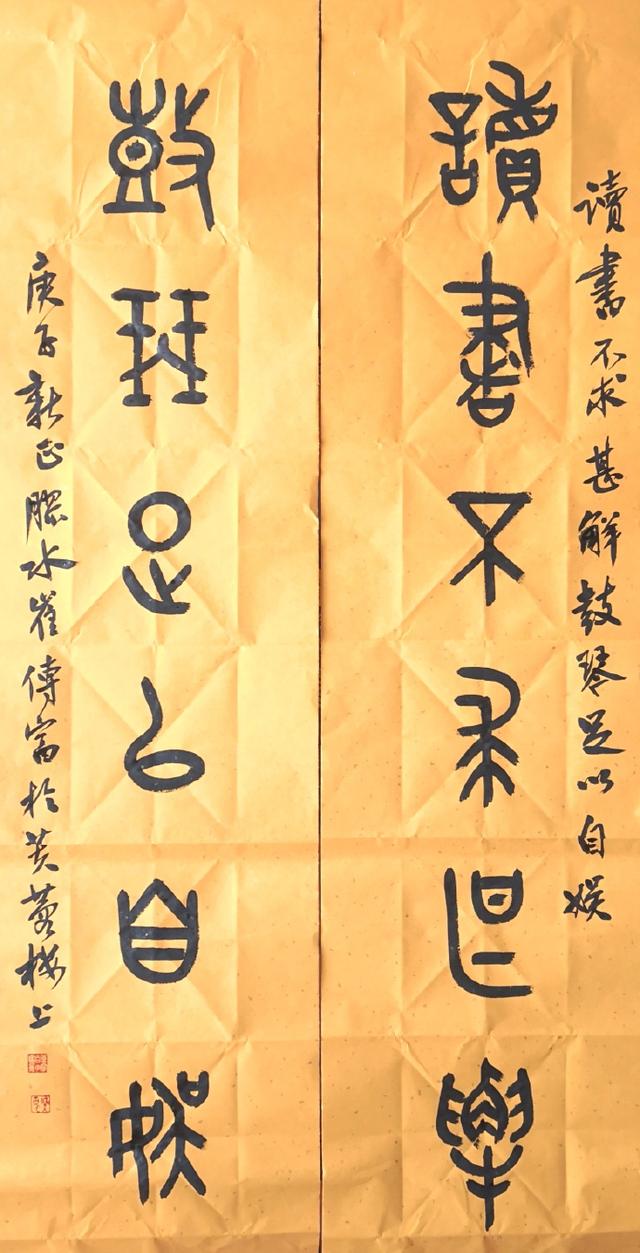 讀書不求甚解
读書不求甚解鼓琴足以自娱
鼓琴足以自娱
庚子新正膠水崔傳富於芙蓉樓上